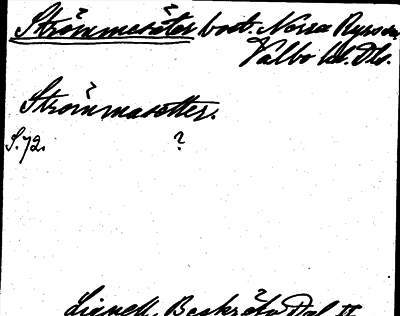 Strömmesäter bost. Norra Ryrs sn,
Valbo hd. Dls.
Strömmasätter.
S. 72. ?
Lignell, Beskrifn Dal II